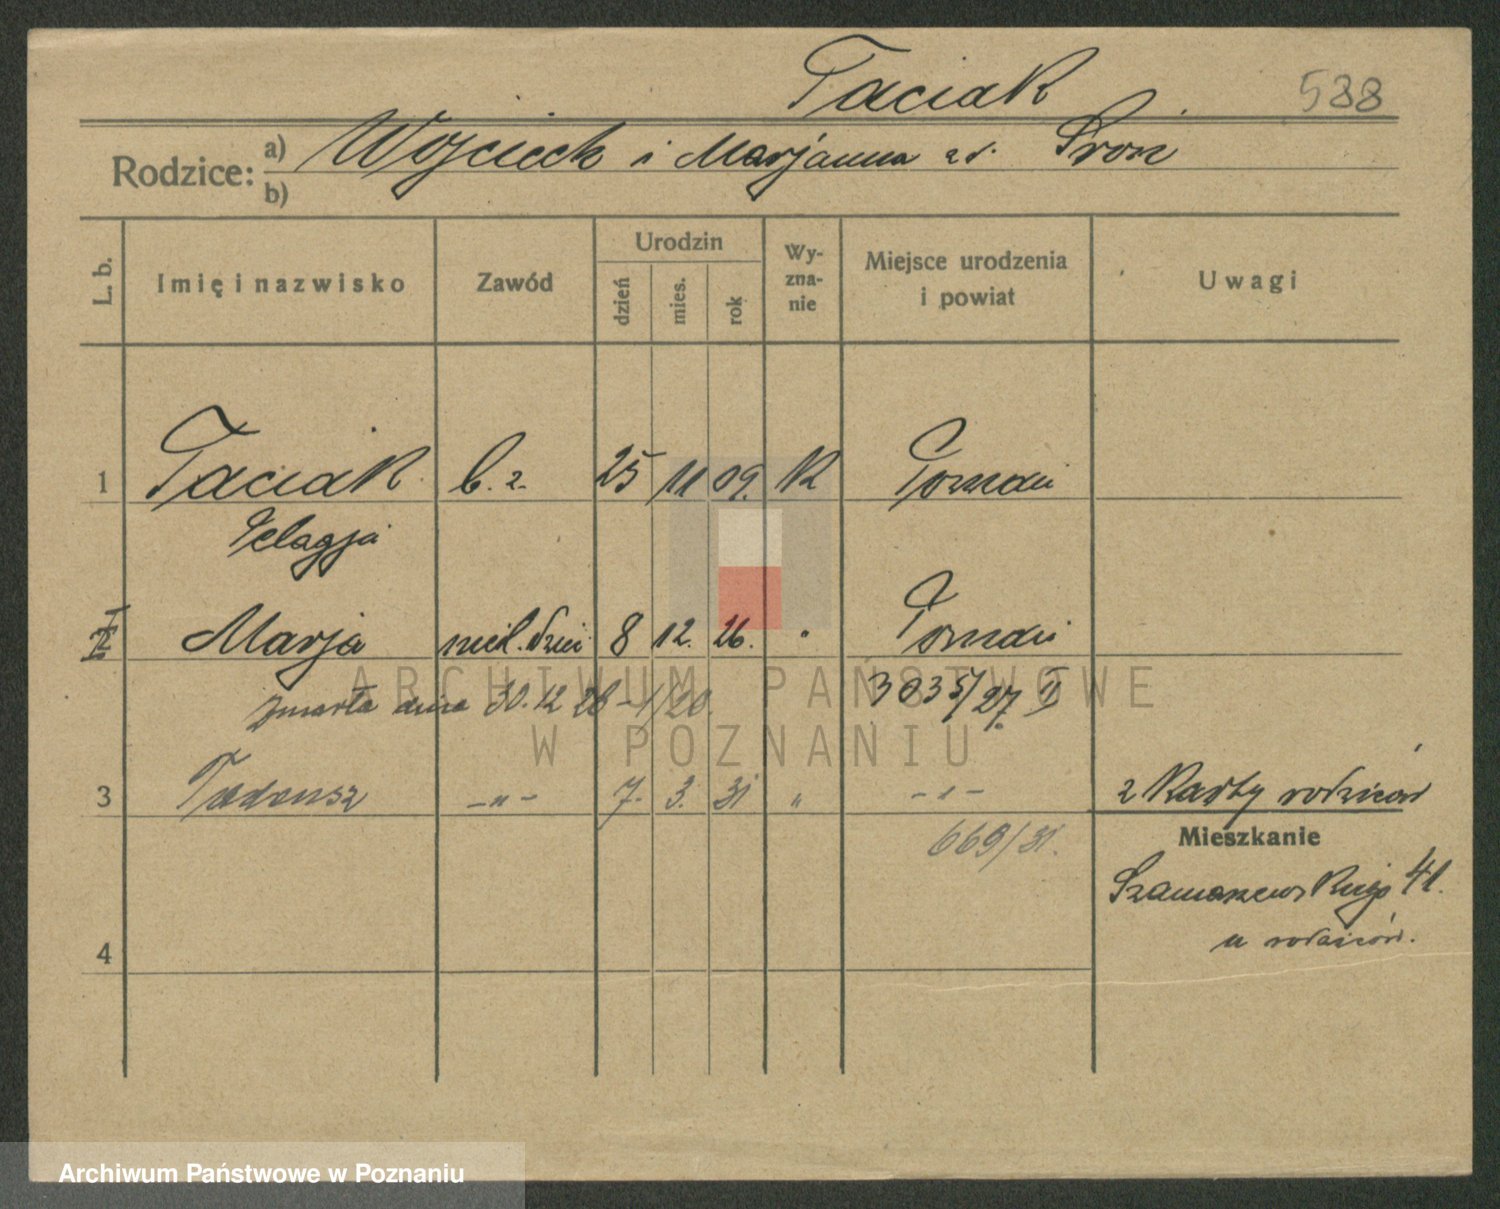 Taciak
588
Rodzice: a) Wojciech i Marjanna zd.
b)
L. b.
Imię i nazwisko
Zawód
Urodzin
dzień
mies.
rok
Wy-
zna-
nie
Miejsce urodzenia
i powiat
Uwagi
1 Taciak b. z. 25 11 09. K Poznań
Pelagja
Marja niel. dzieci 8 12. 26. " Poznań
zmarła dnia 30.12 26 - 1/20. 3035/27. II
3 Tadeusz -"- 7. 3. 31 " -"-
z karty rodziców
669/31.
Mieszkanie
Szamarzewskiego 41.
u rodziców.
4
ARCHIWUM PAŃSTWOWE
W POZNANIU
Archiwum Państwowe w Poznaniu